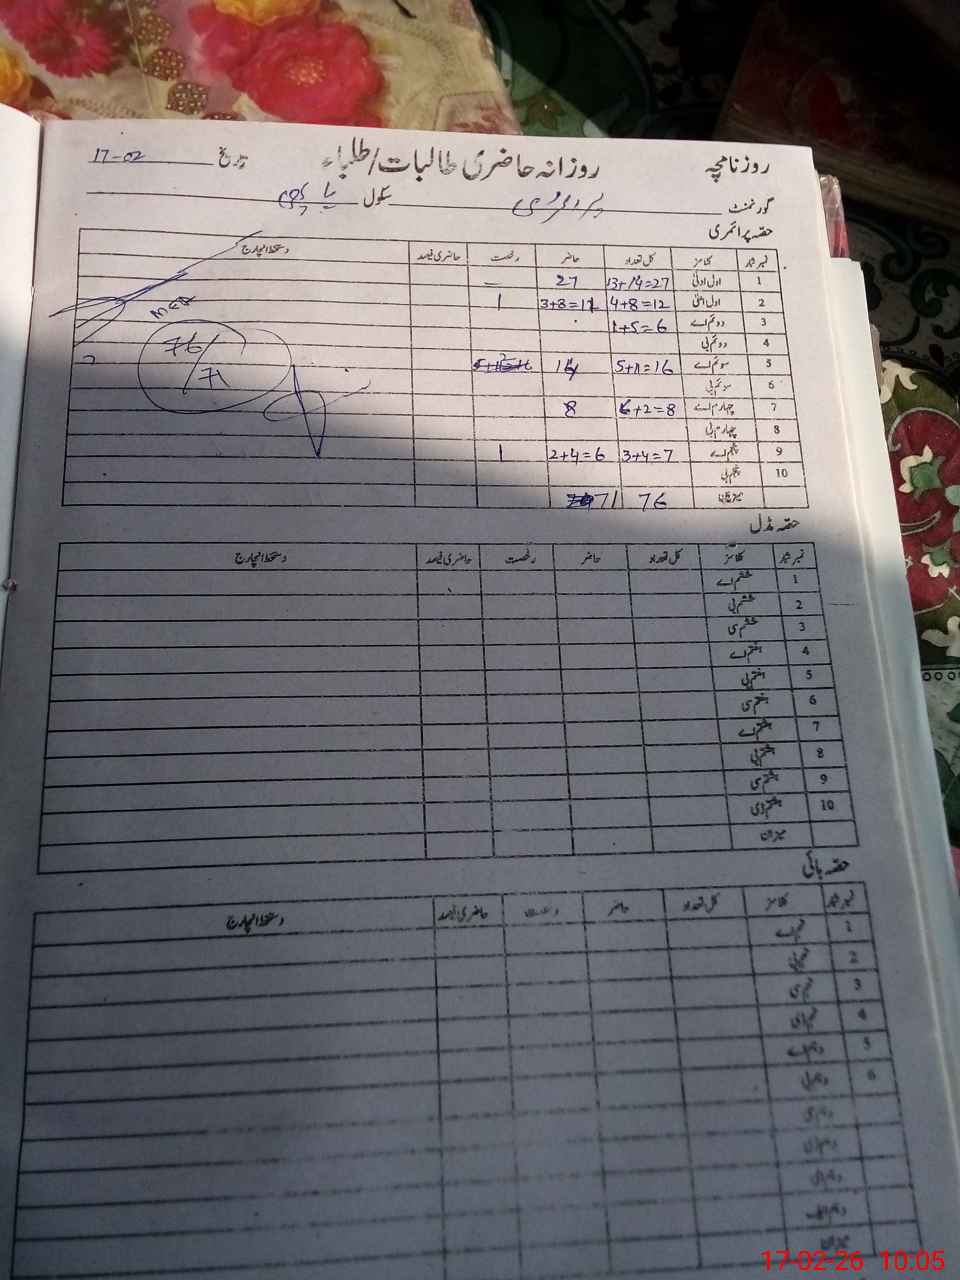 روزنامچہ روزانہ حاضری طالبات/طلباء تاریخ 17-02
گورنمنٹ پرائمری سکول
حصہ پرائمری
نمبر شمار کلاسز کل تعداد حاضر رخصت حاضری فیصد دستخط انچارج
1 اول ادنیٰ 13+14=27 27 –
2 اول اعلیٰ 4+8=12 3+8=11 1
3 دوئم اے 1+5=6
4 دوئم بی
5 سوئم اے 5+11=16 16
6 سوئم بی
7 چہارم اے 6+2=8 8
8 چہارم بی
9 پنجم اے 3+4=7 2+4=6 1
10 پنجم بی
میزان 76 71
MER
76/71
حصہ مڈل
نمبر شمار کلاسز کل تعداد حاضر رخصت حاضری فیصد دستخط انچارج
1 ششم اے
2 ششم بی
3 ششم سی
4 ہفتم اے
5 ہفتم بی
6 ہفتم سی
7 ہشتم اے
8 ہشتم بی
9 ہشتم سی
10 ہشتم ڈی
میزان
حصہ ہائی
نمبر شمار کلاسز کل تعداد حاضر رخصت حاضری فیصد دستخط انچارج
1 نہم اے
2 نہم بی
3 نہم سی
4 نہم ڈی
5 دہم اے
6 دہم بی
دہم سی
دہم ڈی
میزان
17-02-26 10.05